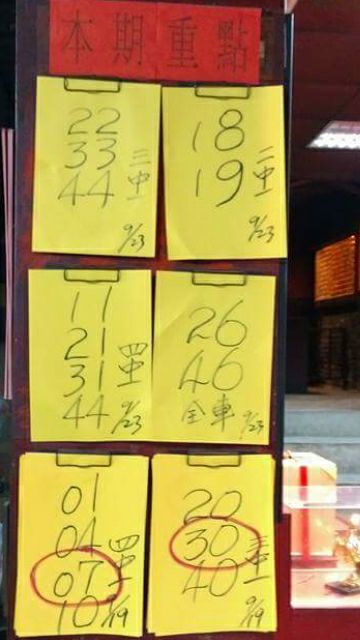 本期重點
22
33
44
三中一
9/23
18
19
二中一
9/23
11
21
31
44
四中一
9/23
26
46
全車
9/23
01
04
07
10
四中一
9/19
20
30
40
三中一
9/19